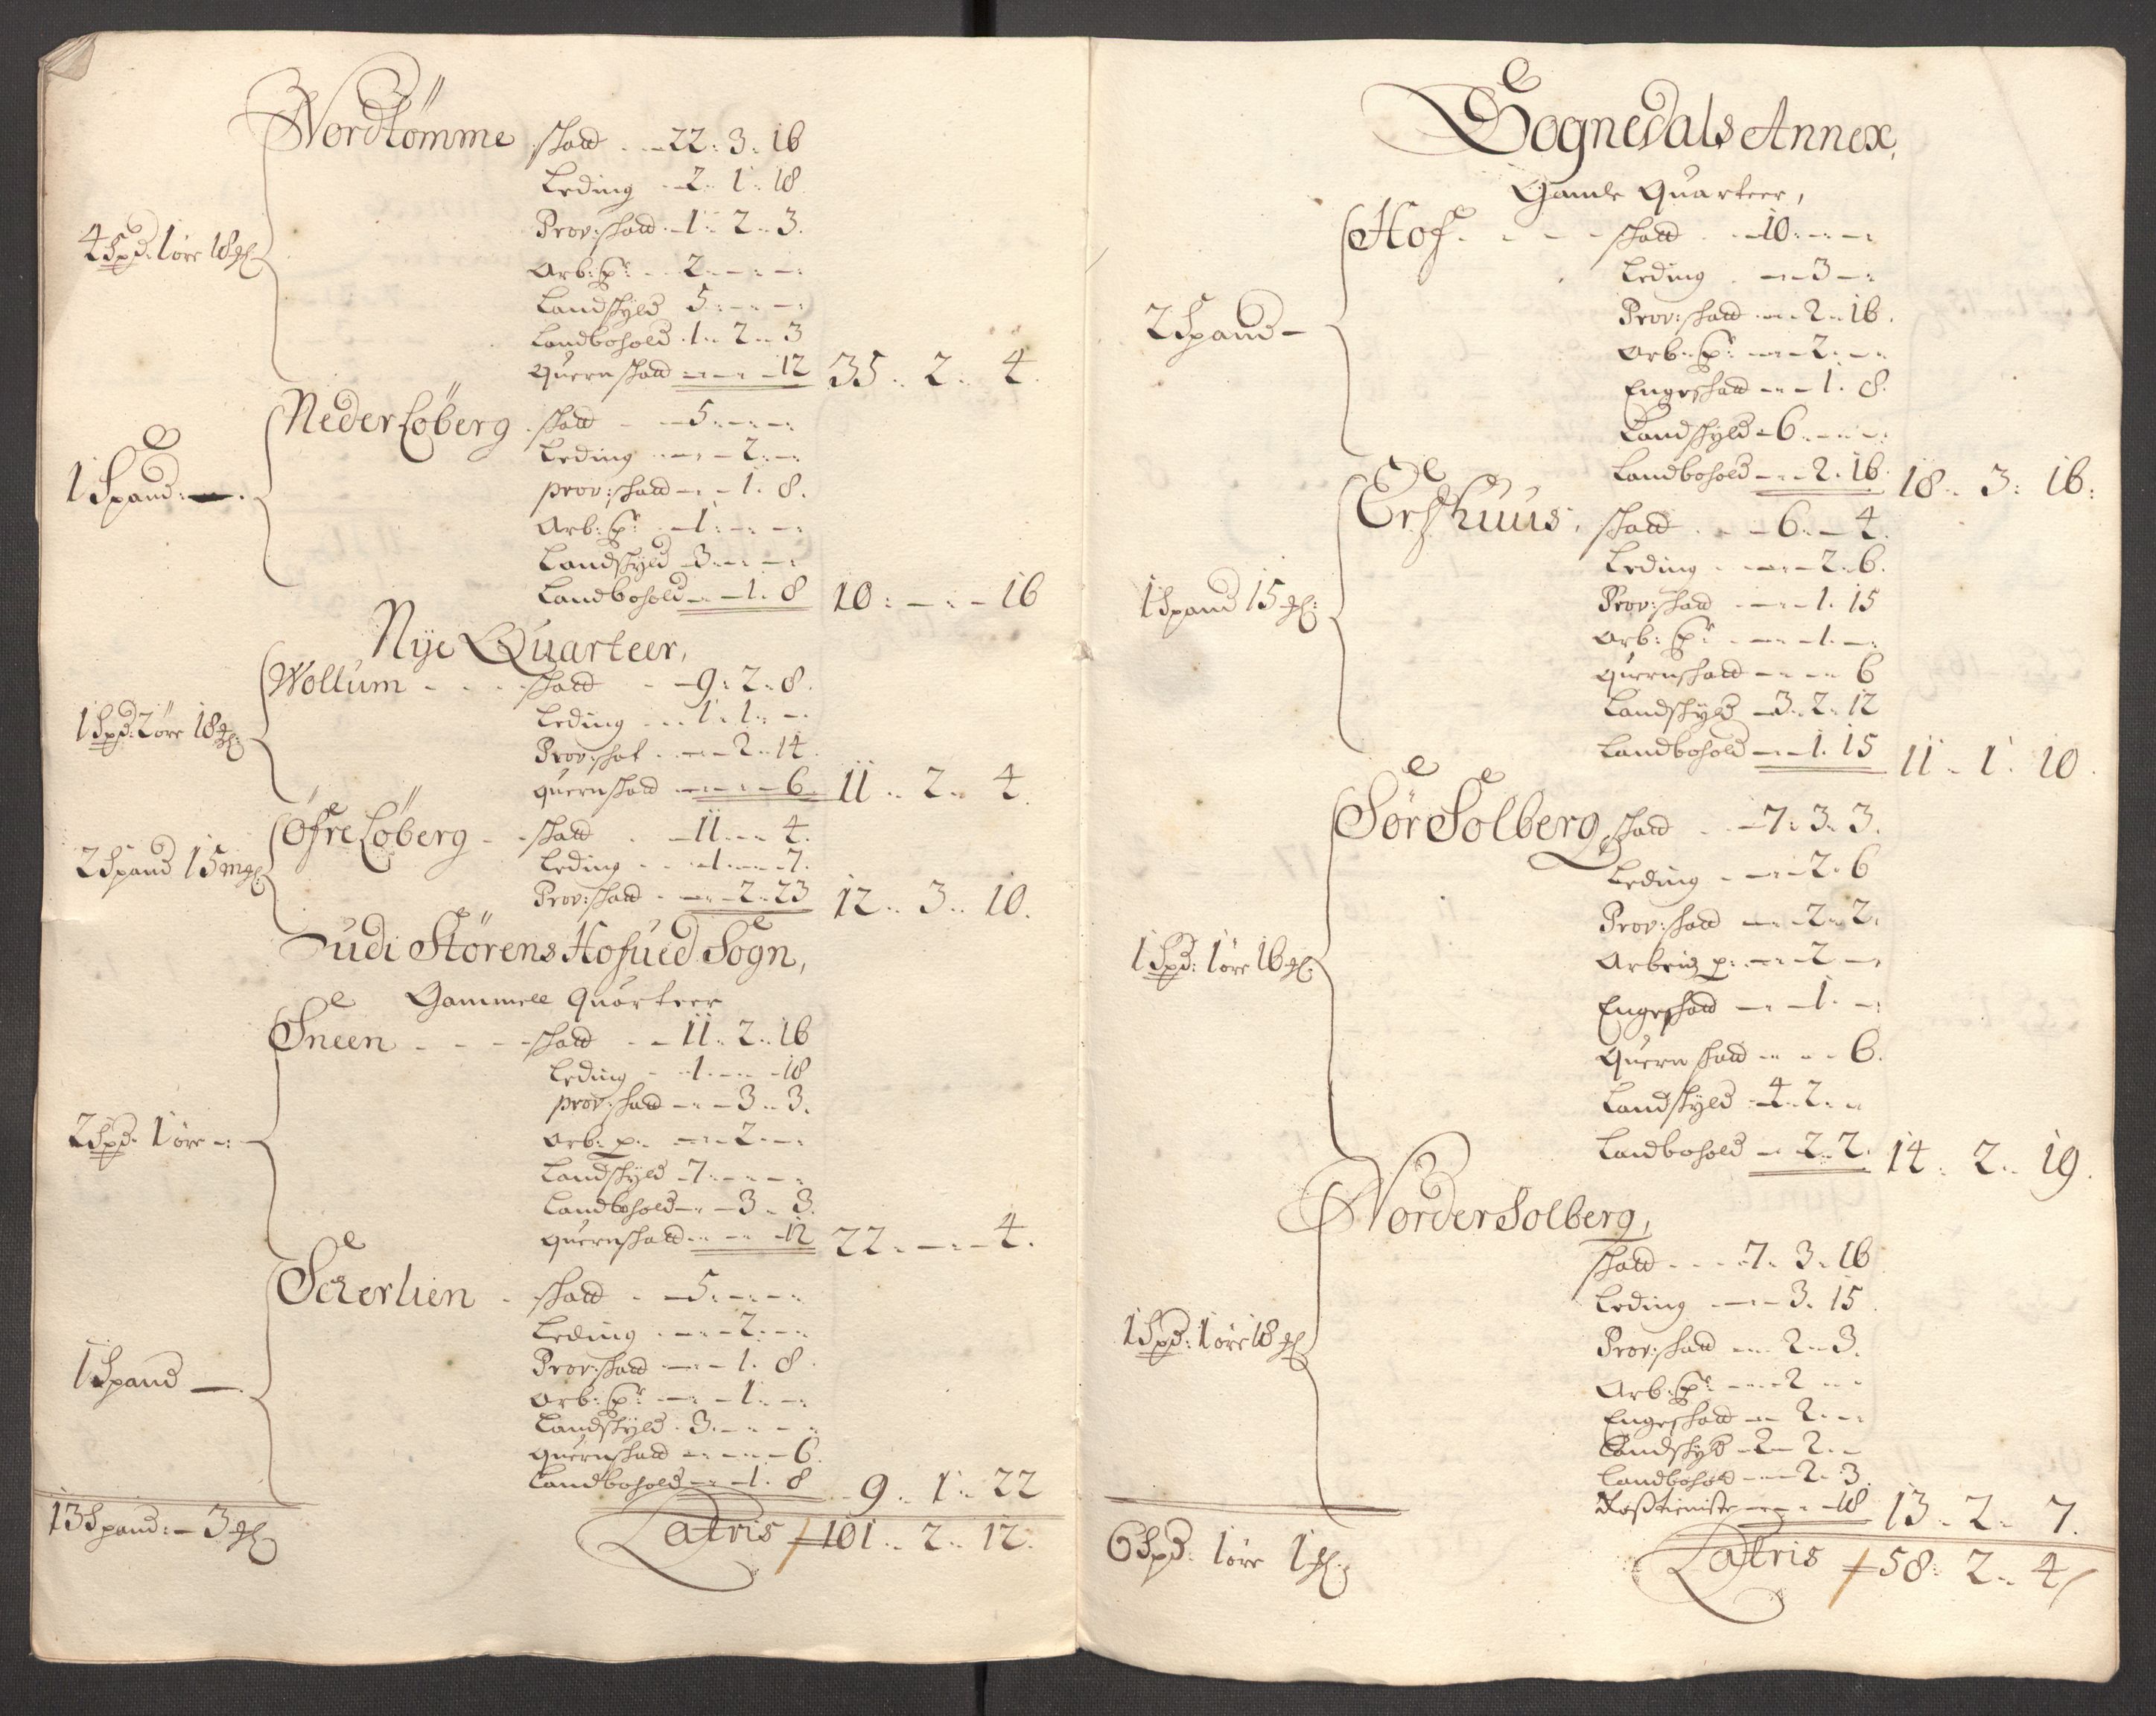 Nordtømme skatt . . – 22 : 3 . 16
Leding . – 2 . 1 . 18
Prov: skatt . – 1 . 2 . 3 .
4 Spd: 1 øre 18 mkl
Arb: P: . . 2 . – . –
Landskyld 5 : – . – :
Landbohold . 1 . . 2 . . 3
Quernskatt – – – 12 35 . . 2 . . 4 .
Neder Løberg . skatt – – 5 . – . – :
Leding . – . – 2 . – :
1 Spand : — .
prov: skatt – . – 1 . 8 .
Arb: P: . – 1 : – . – :
Landskyld – 3 . – . – :
Landbohold – . – 1 . 8 10 : – . – 16
Nÿe Quarteer,
Wollum - . . - skatt – 9 : 2 . 8 .
1 Spd: 2 øre 18 mkl:
Leding . . . 1 . 1 . : –
Prov: skat . – . – 2 . . 14 .
quernskatt – . – . – 6 . 11 . . 2 . . 4 .
Øfre Løberg - . skatt . – 11 . – . 4 .
2 Spand 15 mkl
Leding . . . – 1 . – . – 7 .
Prov: skatt . – . – 2 . 23 12 . . 3 . . 10 .
udi Størens Hofued Sogn,
Gammell Quarteer
Sneen . - - - skatt . – 11 . . 2 . . 16
Leding – . 1 . – . – 18
prov: skatt – . – 3 . . 3 .
2 Spd: 1 øre – :
Arb: p: – . – 2 . – :
Landskyld – 7 . – . – :
Landbohold – . – 3 . . 3 .
quernskatt – . – . – 12 22 . . – . – 4 .
Scherlien . skatt . – 5 . – . – :
Leding . – . – 2 . – :
Prov: skatt . – . – 1 . 8 .
1 Spand — .
Arb: P: – . – 1 . – :
Landskyld . 3 . – . – :
quernskatt – . – . – 6 .
Landbohold – . – 1 . 8 9 . . 1 . . 22
13 Spand: – 3 mkl Latris 101 . . 2 . . 12 .
Sognedals Annex,
Gamle Quarteer,
Hof . . - - skatt . . – 10 . – . – :
Leding . – . – 3 – :
Prov: skatt . – . . 2 . . 16 .
2 Spand –
Arb: P: – . – 2 . – :
Engeskatt – . – 1 . 8 .
Landskyld – 6 . – . – :
Landbohold – . – 2 . 16 . 18 . . 3 : 16 :
skatt . – – 6 . – 4 .
Leding . – . – 2 . 6 .
1 Spand 15 mkl:
Prov: skatt . – . – 1 . 15
Arb: P: . – . – 1 . – :
quernskatt – . – . – 6
Landskyld – 3 . . 2 . 12
Landbohold – . – 1 . 15 11 . . 1 . 10 .
Sør Solberg skatt . . – 7 : 3 . 3 .
Leding . – . – 2 . 6
Prov: skatt – . – 2 . . 2 .
1 Spd: 1 øre 16 mkl:
Arbeidz p: . – . – 2 . – :
Engeskatt – . – 1 . – :
Quernskatt – . – . – 6 .
Landskyld – 4 . 2 . – :
Landbohold – . – 2 . 2 . 14 . . 2 . . 19 .
Norder Solberg,
skatt . - . – 7 . 3 . 16
Leding . – . – 3 . 15 .
1 Spd: 1 øre 18 mkl
Prov: skatt – . . 2 . – 3 .
Arb: P: – . – 2 – . –
Engeskatt – . – 2 . – :
Landskyld – 2 – 2 . –
Landbohold – . – 2 . . 3 .
Rostieniste – . – . – 18 13 . . 2 . . 7 .
6 Spd: 1 øre 1 mkl: Latris 58 : 2 . . 4